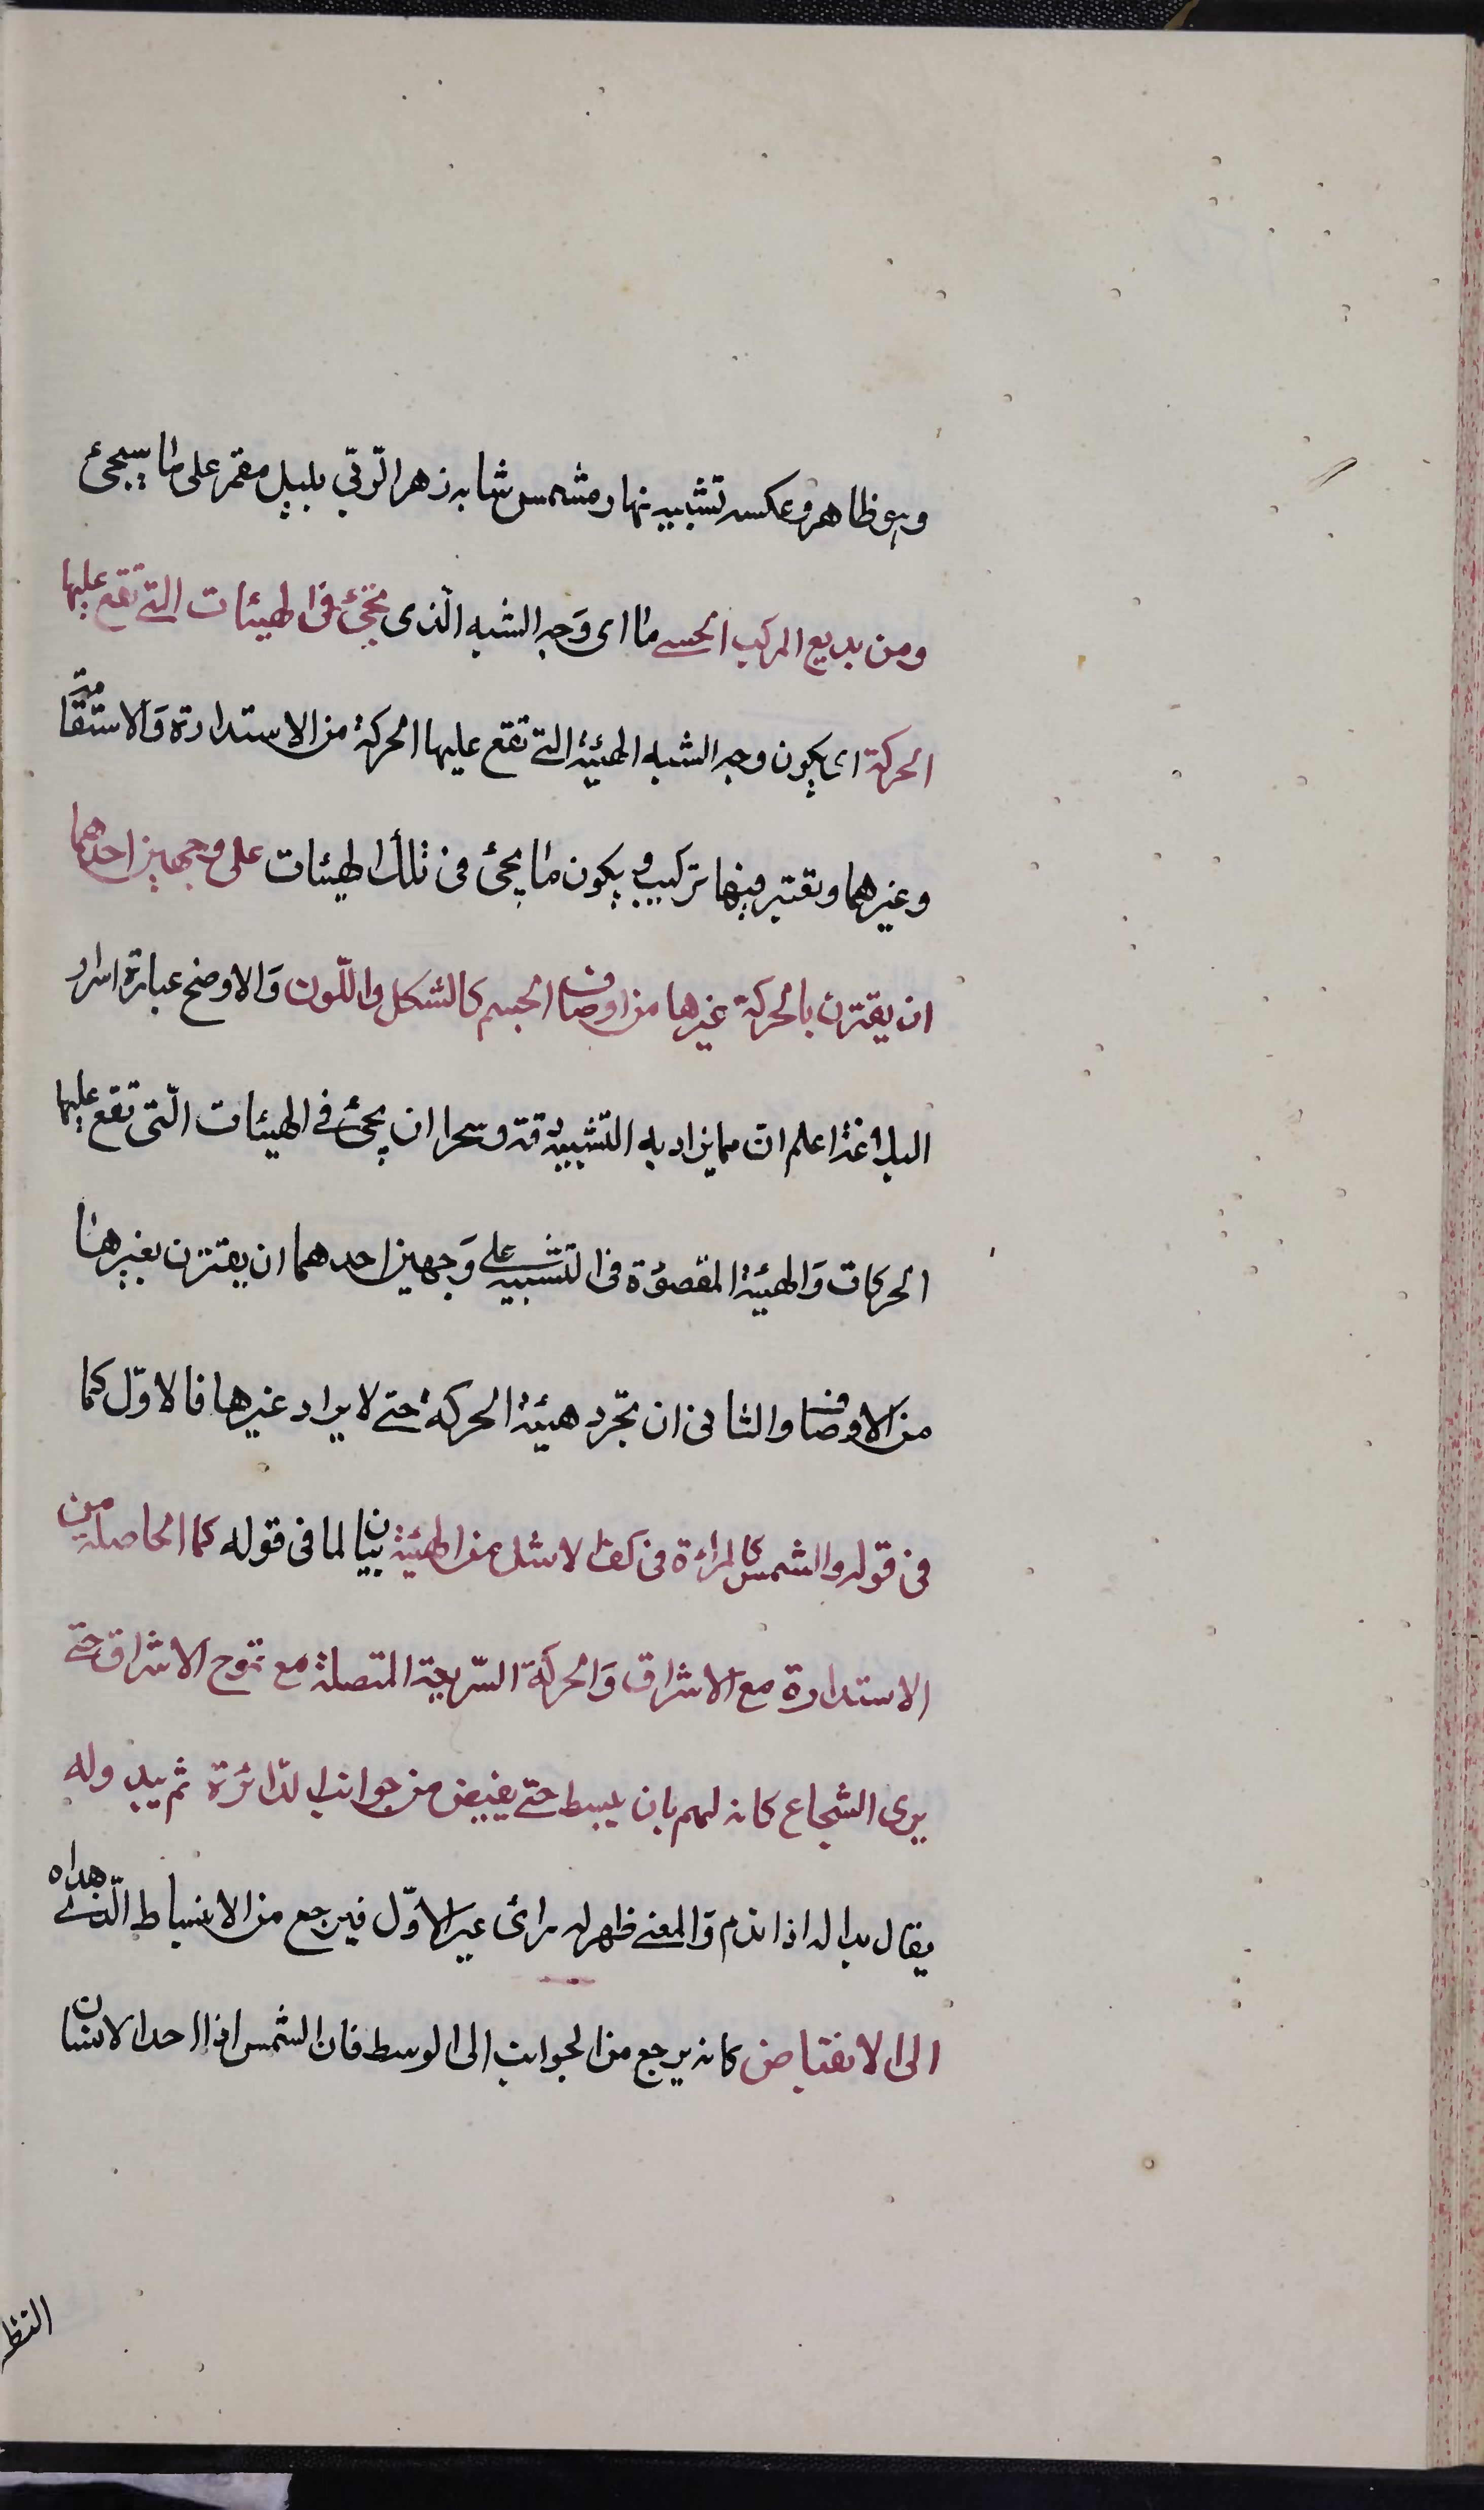 وهو ظاهر وعكسه تشبيه نهار مشمس شابه زهر الرّبى بليل مقمر على ما سيجئ
ومن بديع المركب الحسي ما اى وَجه الشبه الّذى يجئ فى الهيئات التى تقع عليها
الحركة اى يكون وجه الشبه الهيئة التى تقع عليها الحركة من الاستدارة وَالاستقامة
وغيرهما ويعتبر فيها تركيب ويكون ما يجئ فى تلك الهيئات على وجهين احدهما
ان يقترن بالحركة غيرها من اوصاف الجسم كالشكل واللّون وَالاوضح عبارة اسرار
البلاغة اعلم ان مما يزاد به التشبيه دقة وسحرا ان يجئ فى الهيئات الّتى تقع عليها
الحركات وَالهيئة المقصودة فى التشبيه على وَجهين احدهما ان يقترن بغيرها
من الاوصاف والثانى ان تجرّد هيئة الحركة حتى لا يراد غيرها فالاوّل كما
فى قوله والشمس كالمراءة فى كف الاشل من الهيئة بيان لما فى قوله كما الحاصلة من
الاستدارة مع الاشراق وَالحركة السّريعة المتصلة مع تموج الاشراق حتى
يرى الشعاع كانه يهم بان يبسط حتى يفيض من جوانب الدّائرة ثم يبدوله
يقال بدا له اذا ندم وَالمعنى ظهر له راى غير الاوّل فيرجع من الانبساط الّذى بداه
الى الانقباض كانه يرجع من الجوانب الى الوسط فان الشمس اذا احد الانسان
النظر